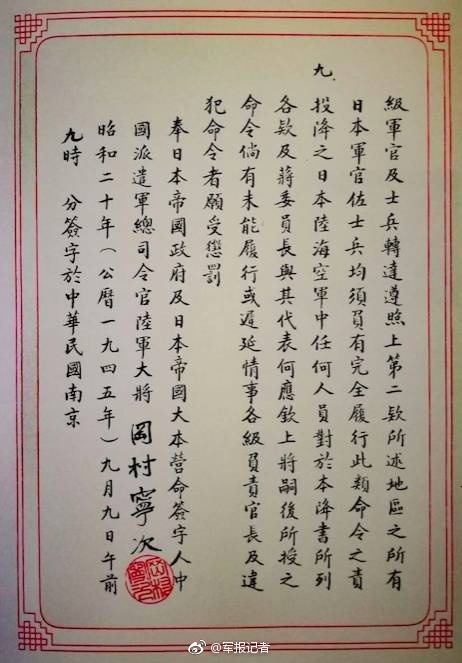 級軍官及士兵轉達遵照上第二欵所述地區之所有
日本軍官佐士兵均須負有完全履行此類命令之責
九、投降之日本陸海空軍中任何人員對於本降書所列
各欵及蔣委員長與其代表何應欽上將嗣後所授之
命令倘有未能履行或遲延情事各級負責官長及違
犯命令者願受懲罰
奉日本帝國政府及日本帝國大本營命簽字人中
國派遣軍總司令官陸軍大將 岡村寧次
昭和二十年(公曆一九四五年)九月九日午前
九時 分簽字於中華民國南京
@军报记者